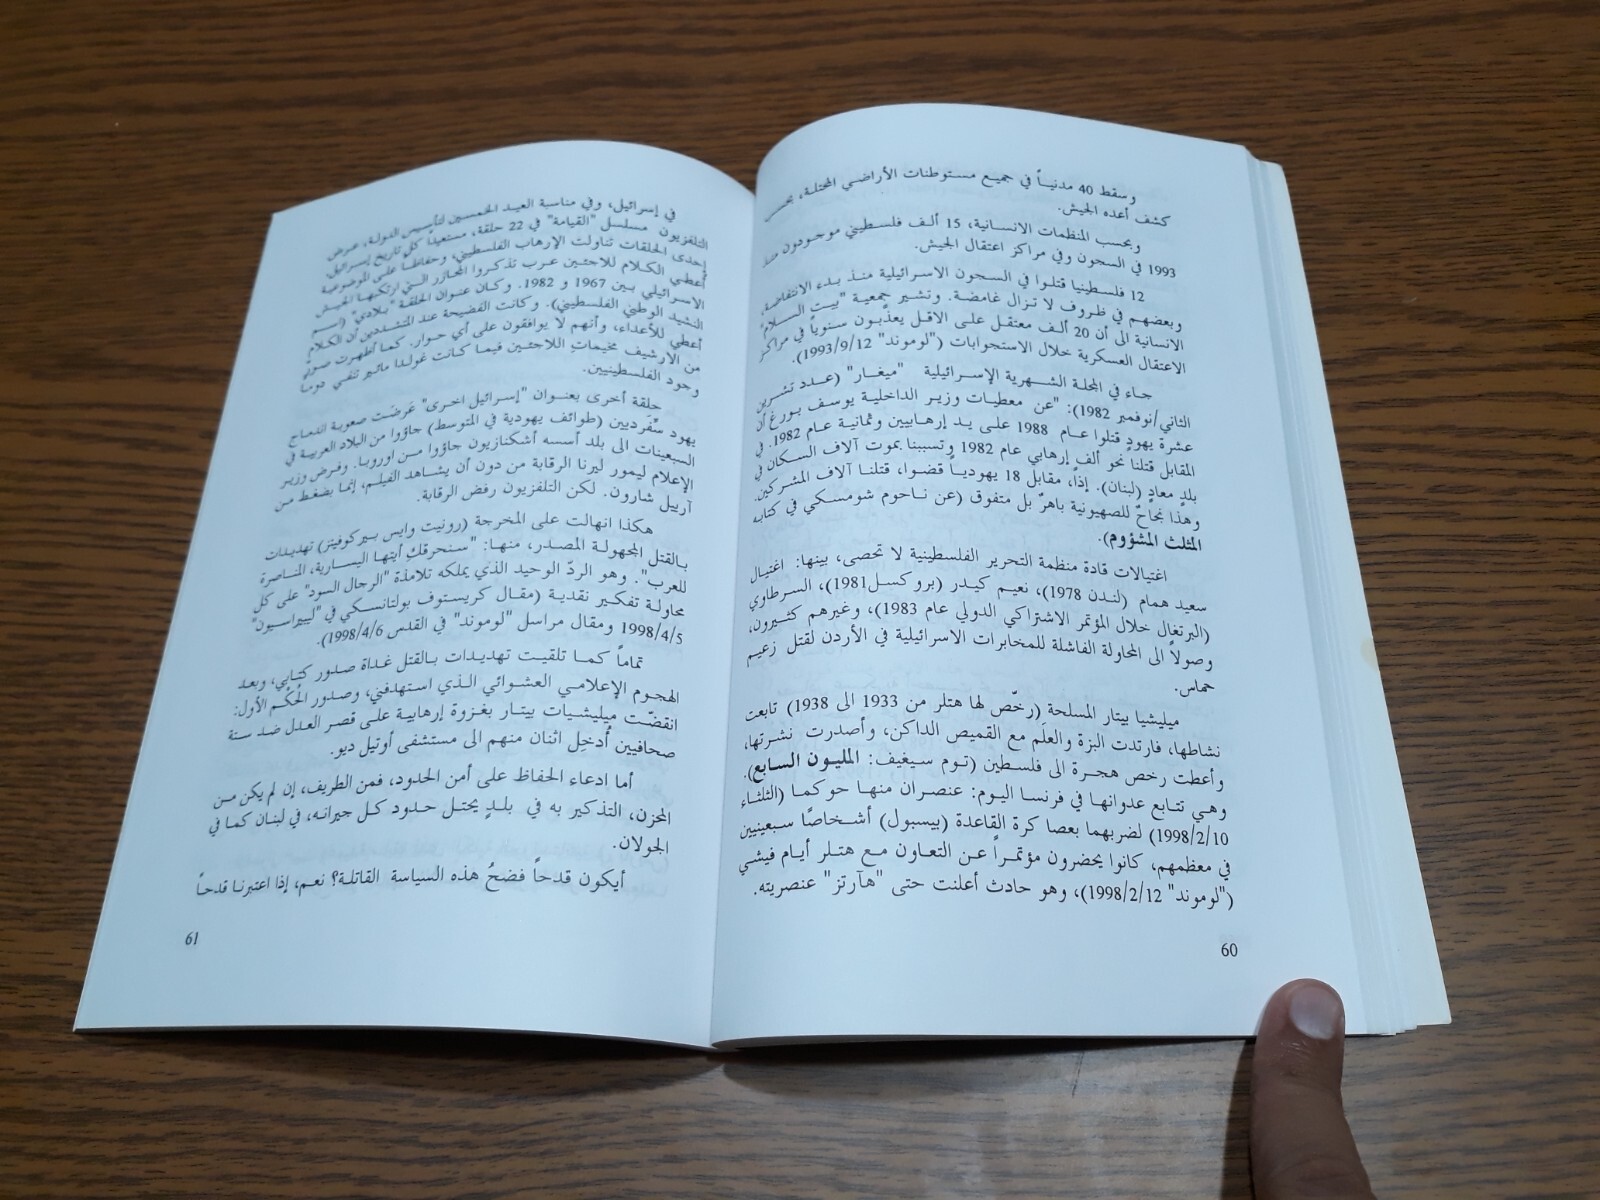 وسقط 40 مدنياً في جميع مستوطنات الأراضي المحتلة، بحسب
كشف أعده الجيش.
وبحسب المنظمات الانسانية، 15 ألف فلسطيني موجودون منذ
1993 في السجون وفي مراكز اعتقال الجيش.
12 فلسطينيا قتلوا في السجون الاسرائيلية منذ بدء الانتفاضة،
وبعضهم في ظروف لا تزال غامضة. وتشير جمعية "بيت السلام"
الانسانية الى أن 20 ألف معتقل على الاقل يعذّبون سنوياً في مراكز
الاعتقال العسكرية خلال الاستجوابات ("لوموند" 1993/9/12).
جاء في المجلة الشهرية الإسرائيلية "ميغار" (عدد تشرين
الثاني/نوفمبر 1982): "عن معطيات وزير الداخلية يوسف بورغ أن
عشرة يهودٍ قتلوا عام 1988 على يد إرهابيين وثمانية عام 1982. في
المقابل قتلنا نحو ألف إرهابي عام 1982 وتسببنا بموت آلاف السكان في
بلدٍ معادٍ (لبنان). إذاً، مقابل 18 يهوديا قضوا، قتلنا آلاف المشركين.
وهذا نجاحٌ للصهيونية باهرٌ بل متفوق (عن ناحوم شومسكي في كتابه
المثلث المشؤوم).
اغتيالات قادة منظمة التحرير الفلسطينية لا تحصى، بينها: اغتيال
سعيد همام (لندن 1978)، نعيم كيدر (بروكسل1981)، السرطاوي
(البرتغال خلال المؤتمر الاشتراكي الدولي عام 1983)، وغيرهم كثيرون،
وصولاً الى المحاولة الفاشلة للمخابرات الاسرائيلية في الأردن لقتل زعيم
حماس.
ميليشيا بيتار المسلحة (رخّص لها هتلر من 1933 الى 1938) تابعت
نشاطها، فارتدت البزة والعلَم مع القميص الداكن، وأصدرت نشرتها،
وأعطت رخص هجرة الى فلسطين (توم سيغيف: المليون السابع).
وهي تتابع عدوانها في فرنسا اليوم: عنصران منها حوكما (الثلثاء
1998/2/10) لضربهما بعصا كرة القاعدة (بيسبول) أشخاصًا سبعينيين
في معظمهم، كانوا يحضرون مؤتمراً عن التعاون مع هتلر أيام فيشي
("لوموند" 1998/2/12)، وهو حادث أعلنت حتى "هآرتز" عنصريته.
60
في إسرائيل، وفي مناسبة العيد الخمسين لتأسيس الدولة، عرض
التلفزيون مسلسل "القيامة" في 22 حلقة، مستعيداً كل تاريخ إسرائيل.
إحدى الحلقات تناولت الإرهاب الفلسطيني، وحفاظا على الموضوعية
أعطي الكلام للاجئين عرب تذكروا المجازر التي ارتكبها الجيش
الاسرائيلي بين 1967 و 1982. وكان عنوان الحلقة "بلادي" (اسم
النشيد الوطني الفلسطيني). وكانت الفضيحة عند المتشددين أن الكلام
أعطي للأعداء، وأنهم لا يوافقون على أي حوار. كما أظهرت صورٌ
من الارشيف مخيماتِ اللاجئين فيما كانت غولدا مائير تنفي دوما
وجود الفلسطينيين.
حلقة أخرى بعنوان "إسرائيل اخرى" عَرضت صعوبة اندماج
يهود سفرديين (طوائف يهودية في المتوسط) جاؤوا من البلاد العربية في
السبعينات الى بلد أسسه أشكنازيون جاؤوا من اوروبا. وفرض وزير
الإعلام ليمور ليرنا الرقابة من دون أن يشاهد الفيلم، إنما بضغط من
آرييل شارون. لكن التلفزيون رفض الرقابة.
هكذا انهالت على المخرجة (رونيت وايس بيركوفيتز) تهديدات
بالقتل المجهولة المصدر، منها: "سنحرقكِ أيتها اليسارية، المناصرة
للعرب". وهو الردّ الوحيد الذي يملكه تلامذة "الرجال السود" على كل
محاولة تفكير نقدية (مقال كريستوف بولتانسكي في "ليبيراسيون"
1998/4/5 ومقال مراسل "لوموند" في القدس 1998/4/6).
تماماً كما تلقيت تهديدات بالقتل غداة صدور كتابي، وبعد
الهجوم الإعلامي العشوائي الذي استهدفني، وصدور الحُكْم الأول:
انقضّت ميليشيات بيتار بغزوة إرهابية على قصر العدل ضد ستة
صحافيين أُدخِل اثنان منهم الى مستشفى أوتيل ديو.
أما ادعاء الحفاظ على أمن الحدود، فمن الطريف، إن لم يكن من
المحزن، التذكير به في بلدٍ يحتل حدود كل جيرانه، في لبنان كما في
الجولان.
أيكون قدحاً فضحُ هذه السياسة القاتلة؟ نعم، إذا اعتبرنا قدحاً
61